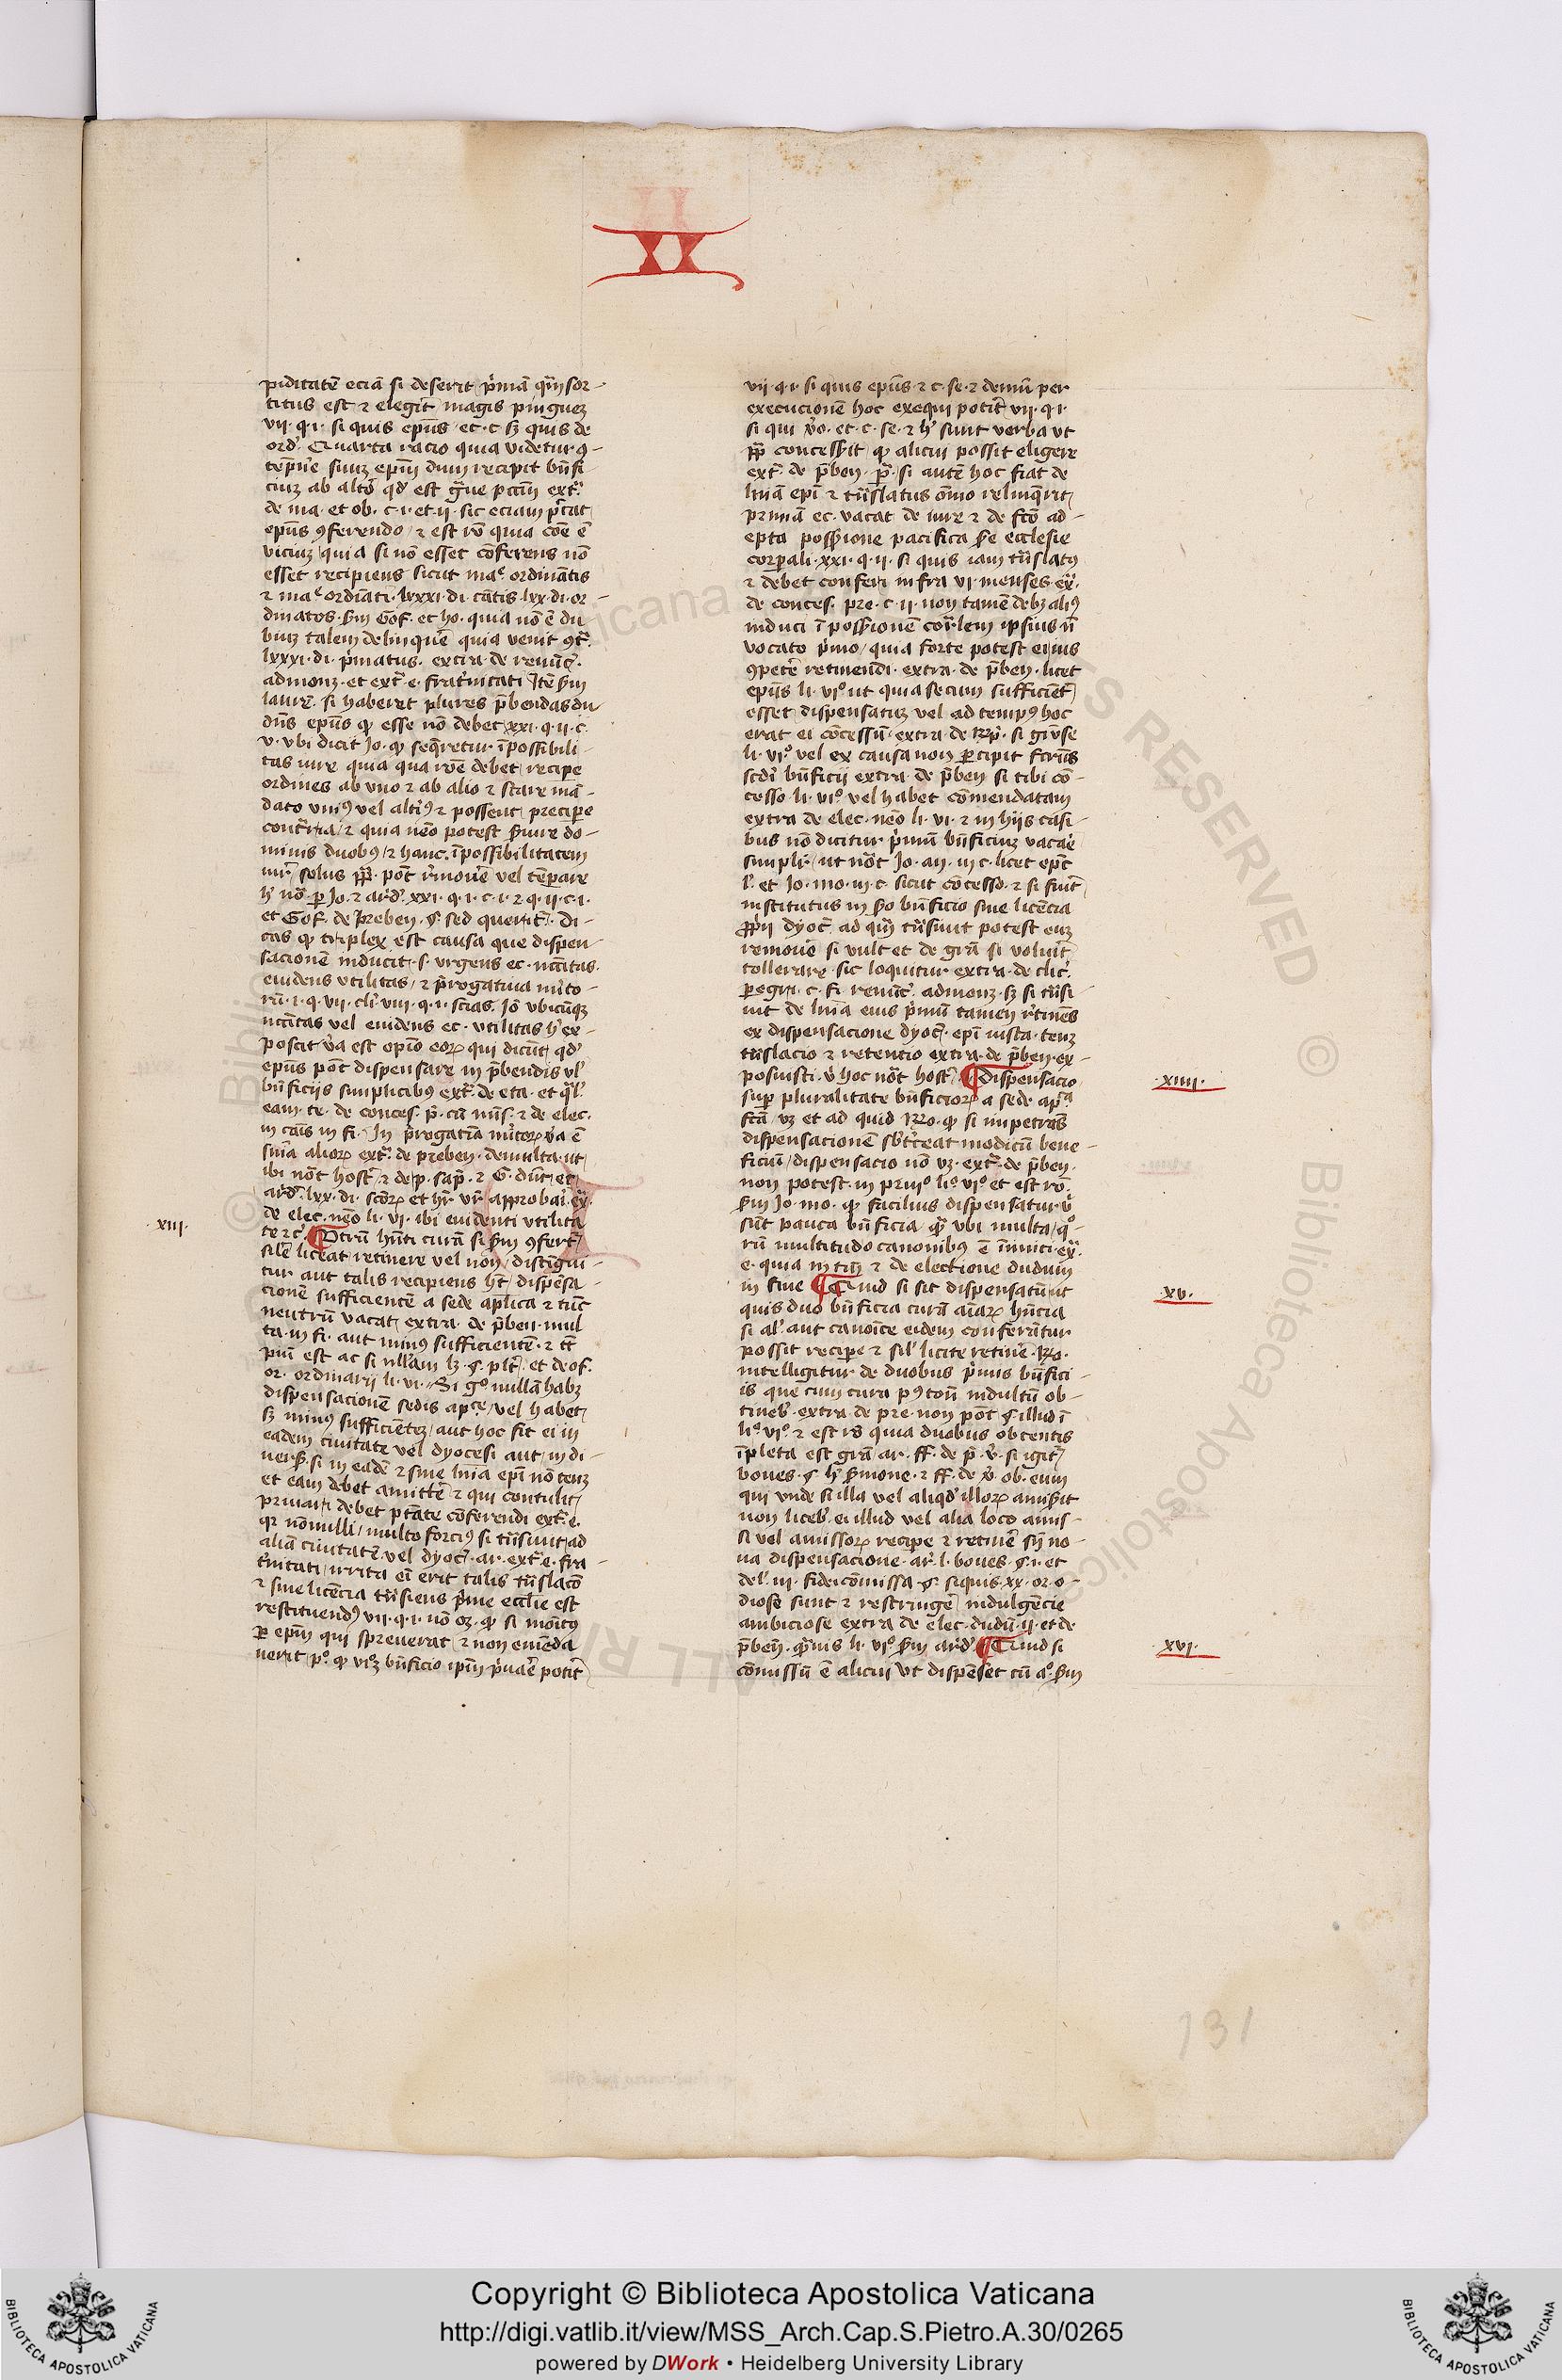 XX
piditatē eciā si deserit p̄mā q̄m sor-
titus est ⁊ elegit magis pinguem
vii. q. i. si quis ep̄us et c. c. sꝫ quis de
ord. Quarta racio quia videtur ꝯ-
tēpne suuꝫ ep̄m dum recipit bn̄fi-
ciuꝫ ab alto qd est gue pccm ext.
de ma. et ob. c. i. et ii. sic eciam pctat
ep̄us ꝯferendo ⁊ est ro quia coē ē
viciuꝫ quia si nō esset cōferens nō
esset recipiens sicut ma. ordinātis
⁊ ma. ordiati. lxxxi. di. lxx. di. or-
dinatos. Gof. et ho. quia nō ē du
biuꝫ talem delinquē quia venit
lxxxi. di. p̄matus. extra de renūc.
admonꝫ. et ext. e. fratnitati Itē
laure. si haberet plures p̄bendas du
ep̄us qꝫ esse nō debet xxi. q. ii. c.
v. vbi dicit Jo. qꝫ seqretur īpossibili-
tas iure quia debet recipe
ordines ab vno ⁊ ab alio ⁊ stare mā-
dato vniꝯ vel altiꝯ ⁊ possent precipere
cont̄ria ⁊ quia nēo potest suire do-
minis duobꝫ ⁊ hanc īpossibilitatem
solus pp̄ pot rīmouē vel tēpare
Jo. ⁊ ard. xxi. q. i. c. i. ⁊ q. ii. c. i.
et Gof. de preben. §. sed querit. Di-
cas qꝫ triplex est causa que dispen-
sacionē inducit. s. vrgens ec. nc̄citas.
euidens vtilitas ⁊ p̄rogatiua mīto-
rū. i. q. vii. viii. q. i. scias. Jo vbicūqꝫ
nc̄citas vel euidens ec. vtilitas ex-
poscit va est opio eorꝫ qui dicūt qd
ep̄us pōt dispensare in p̄bendis vl
bn̄ficijs simplicibꝫ ext. de eta. et
de conces. p̄. ⁊ de elec.
in fi. In p̄rogatia mītorꝫ va ē
snia aliorꝫ ext. de preben. demulta. ut
ibi nōt host ⁊
ard. lxx. di. approbai. ex.
de elec. nēo li. vi. ibi euidenti vtilita
te ⁊c. Vtrū hn̄ti curā si ꝯfert
silē liceat retinere vel non distīgui-
tur aut talis recipiens ht dispēsa-
cionē sufficientē a sede ap̄lica ⁊ tūc
neutrū vacat extra. de p̄ben. mul
ta. in fi. aut minꝯ sufficientē ⁊ tt̄
est ac si et de of.
or. ordinarii li. vi. Si gᵒ nullā habꝫ
dispensacionē sedis apce vel habet
sꝫ minꝯ sufficiētem aut hoc fit ei in
eadem ciuitate vel dyocesi aut in di-
uers. si in eadē ⁊ sine lnīa ep̄i nō tenꝫ
et eam debet amittē ⁊ qui contulit
priuari debet ptāte cōferendi ext. e.
qr nōnulli multo forcius si tn̄siuit ad
aliā ciuitatē vel dyoc. ar. ext. e. fra-
tnitati irrita ei erit talis tn̄slacō
⁊ sine licēcia tn̄siens p̄me eccl̄ie est
restituendꝯ vii. q. i. nō oꝫ. qꝫ si monitꝯ
ꝑ ep̄m qui spreuerat ⁊ non emēda
uerit qꝫ bn̄ficio ip̄m p̄uare potit
· xiii ·
vii. q. i. si quis ep̄us ⁊ c. se. ⁊ demū per
execucionē hoc exequi potit vii. q. i.
si qui vo. et. c. se. ⁊ h sunt verba vt
pp̄ concessit qꝫ alicui possit eligere
ext. de p̄ben. pp̄. si autē hoc fiat de
lnīā ep̄i ⁊ tn̄slatus ōīno relinqrit
primā ec. vacat de iure ⁊ de fcō ad-
epta possione pacifica ecclesie
corꝑali. xxi. q. ii. si quis iam tn̄slatꝯ
⁊ debet conferi infra vi menses. ex.
de conces. pre. c. ii. non tamē debꝫ aliꝯ
induci ī possionē ipsius n̄
vocato p̄mo quia forte potest ei ius
ꝯpetē retinendi. extra. de p̄ben. licet
ep̄us li. viᵒ ut quia secum sufficiēt
esset dispensatuꝫ vel ad tempꝯ hoc
erat ei cōcessū extra de Rp̄. si gr̄ose
li. viᵒ vel ex causa non ꝑcipit fctūs
scdi bn̄ficii extra. de p̄ben. si tibi cō-
cesso li. viᵒ vel habet cōmendatam
extra de elec. nēo li. vi. ⁊ in hijs casi-
bus nō dicitur p̄mū bn̄ficiuꝫ vacaē
simplr ut nōt Jo. an. in c. licet
et Jo. mo. in c. sicut cōcesso. ⁊ si fuit
institutus in sdo bn̄ficio sine licēcia
dyoc ad qm tn̄siuit potest euꝫ
remouē si vult et de grā si voluit
tollerare sic loquitur extra. de clic.
ꝑegri. c. fi. renūc. admonꝫ. sꝫ si tn̄si-
uit de lnīa eius p̄mū tamen rtinēs
ex dispensacione dyoc. ep̄i iusta. tenꝫ
tn̄slacio ⁊ retentio extra. de p̄ben. ex-
posuisti. v hoc nōt host. Dispensacio
sup pluralitate bn̄ficiorꝫ a sede apᵃ
fcā vꝫ et ad quid Ro. qꝫ si impetrās
dispensacionē sbtceat modicū bene-
ficiū dispensacio nō vꝫ. ext. de p̄ben.
non potest. in priuᵒ liᵒ viᵒ et est ro.
Jo. mo. qꝫ facilius dispensatur v
sūt pauca bn̄ficia. q̄ vbi multa qᵒ
rū multitudo canonibꝫ ē īimici. ex.
e. quia in tm̄ ⁊ de electione dudum
in fine Quid si sit dispensatū ut
quis duo bn̄ficia curā aīarꝫ hn̄cia
si al. aut canoīce eidem conferātur
possit recipe ⁊ sil licite retinē. Ro.
intelligitur de duobus p̄mis bn̄fici-
is que cum cura pꝯ toū indultū ob-
tineb. extra. de pre. non pōt §. illud ī
liᵒ viᵒ ⁊ est ro quia duobus obtentis
īpleta est grā ar. ff. de si igit
boues. §. h smone. ⁊ ff. de v. ob. eum
qui vnde si illa vel aliqd illorꝫ amisit
non liceb. ei illud vel alia loco amis-
si vel amissorꝫ recipe ⁊ retinē sn̄ no-
ua dispensacione. ar. l. boues. §. i. et
del. iii. fideicōmissa. §. siquis. xx. or. o-
diose sunt ⁊ restringē indulgēcie
ambiciose extra de elec. dudū. ii. et de
p̄ben. q̄uis li. viᵒ ard. Quid si
cōmissū ē alicui vt dispēset cū aᵒ
· xiiii ·
· xv ·
· xvi ·
131
© Biblioteca Apostolica Vaticana ALL RIGHTS RESERVED
Copyright © Biblioteca Apostolica Vaticana
http://digi.vatlib.it/view/MSS_Arch.Cap.S.Pietro.A.30/0265
powered by DWork • Heidelberg University Library
BIBLIOTECA APOSTOLICA VATICANA
BIBLIOTECA APOSTOLICA VATICANA